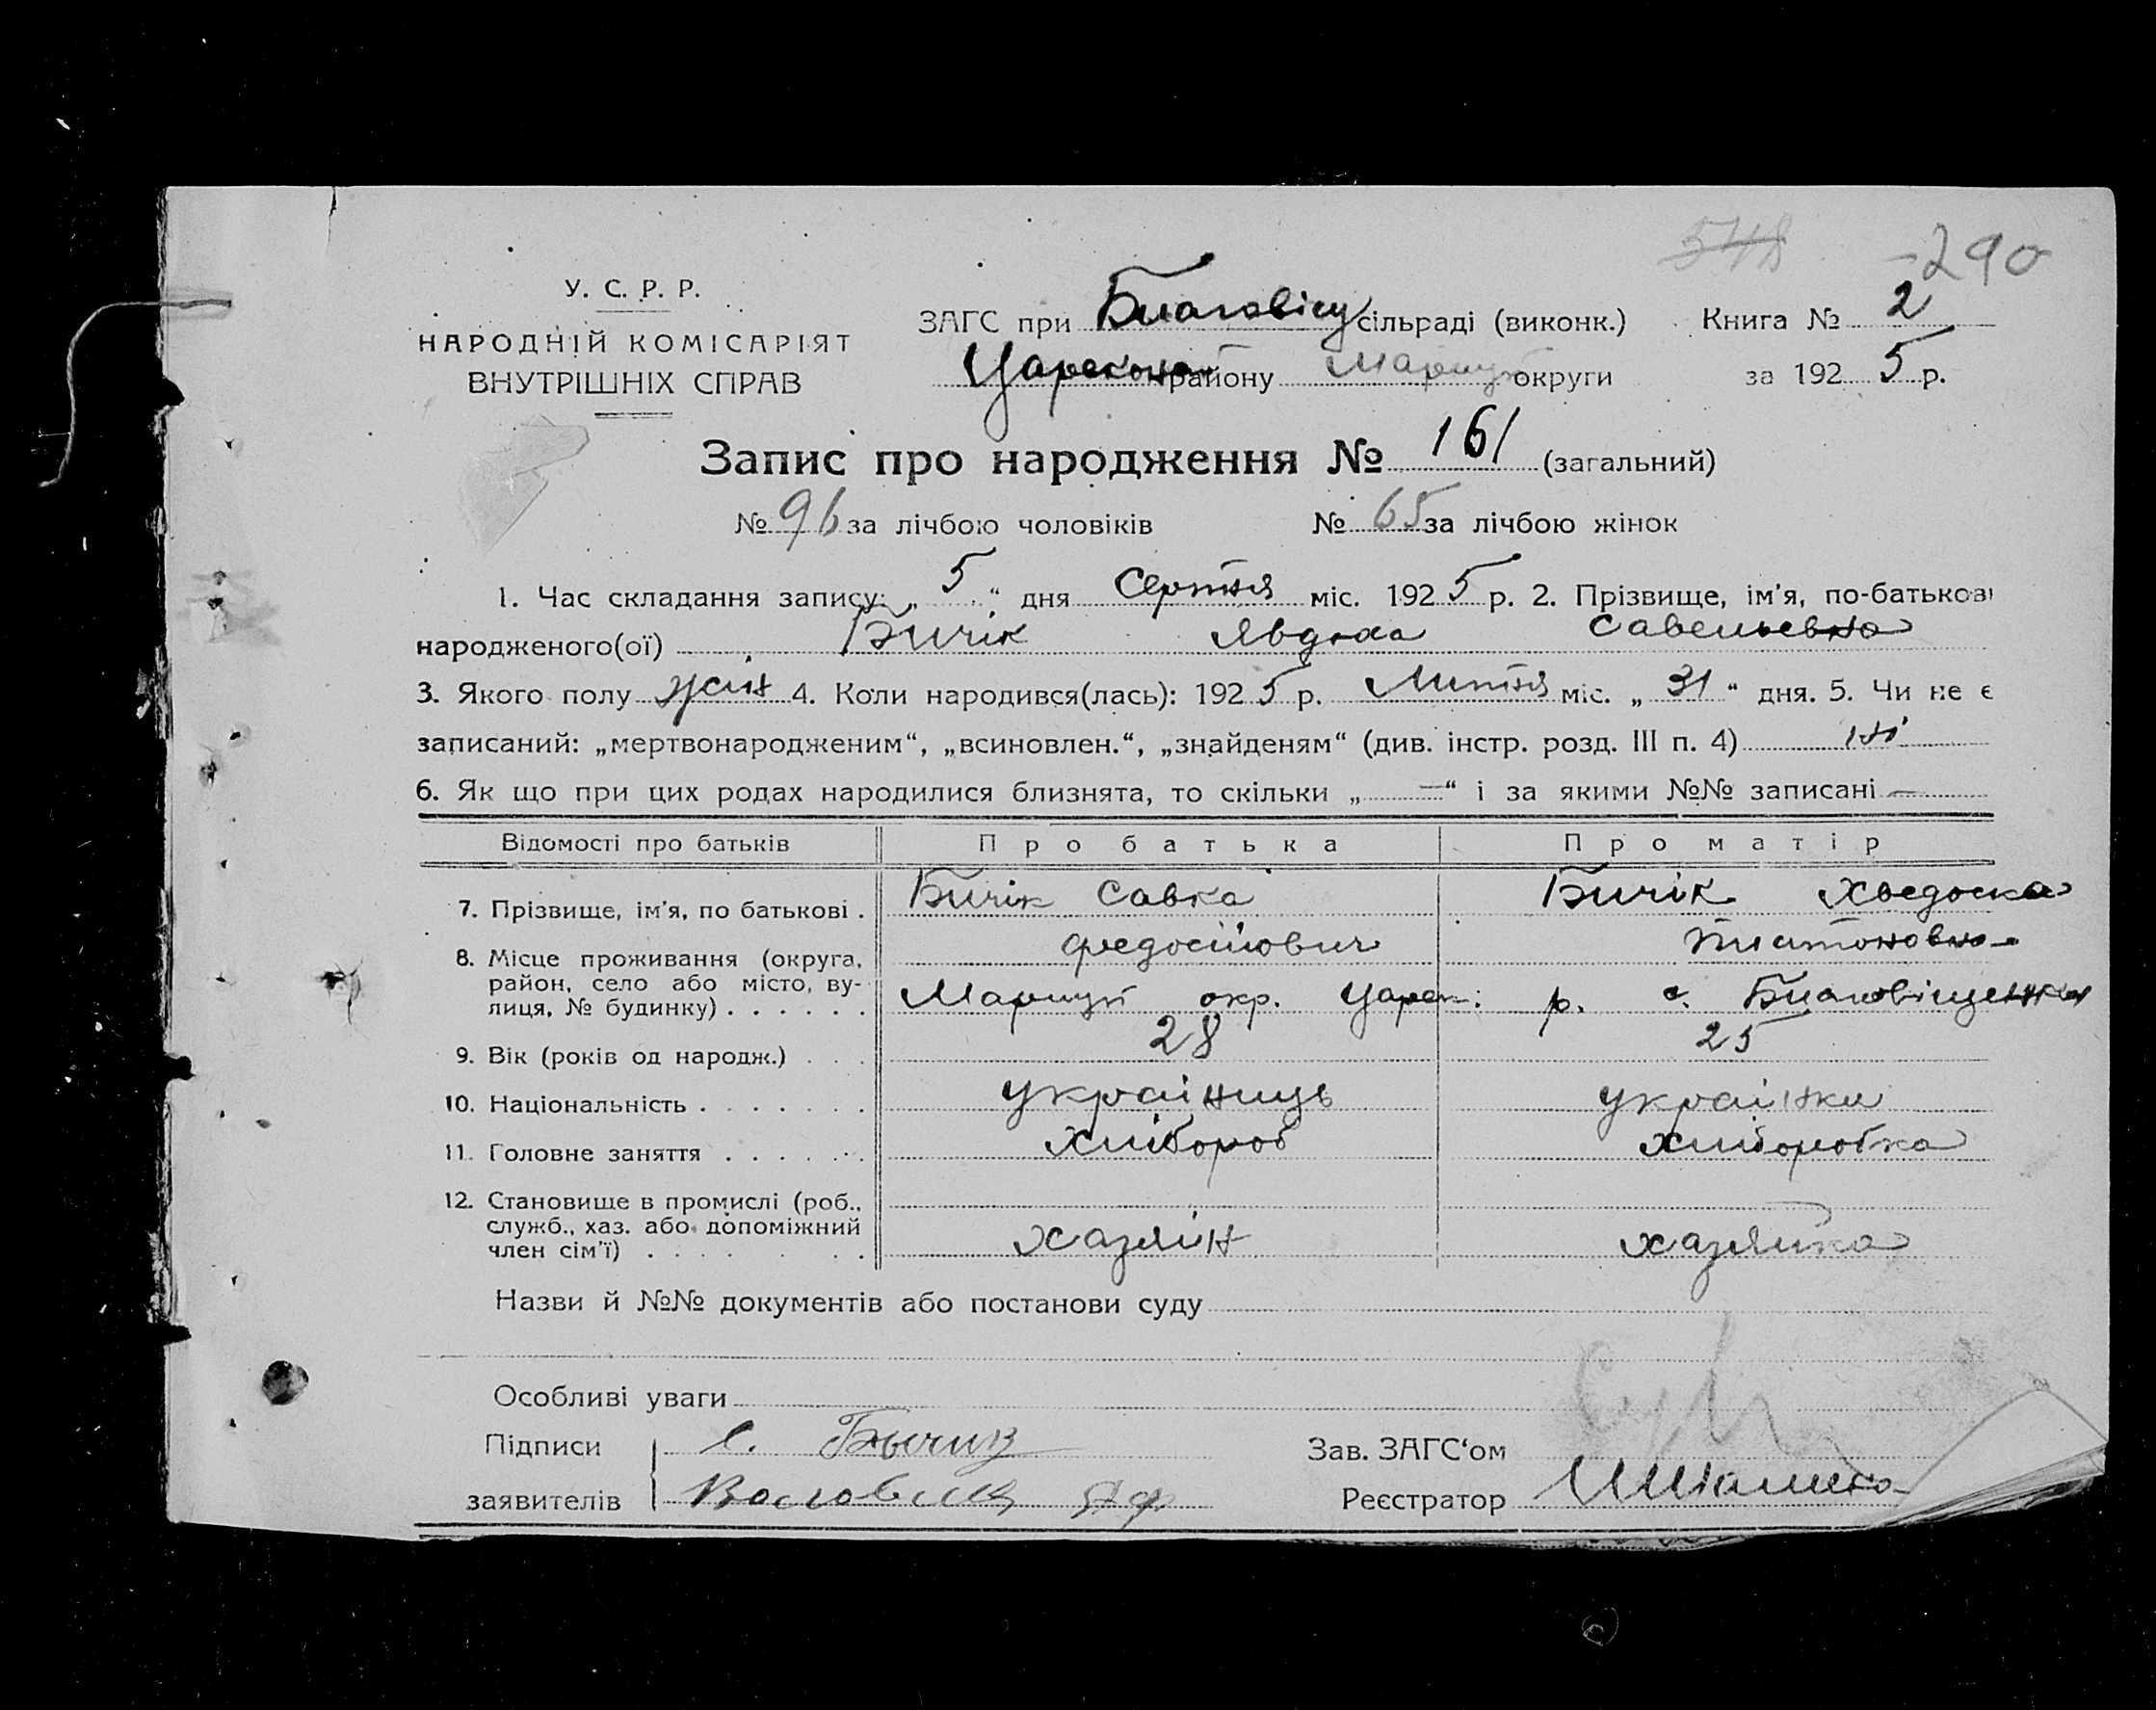 548 290
У. С. Р. Р.
НАРОДНІЙ КОМІСАРІЯТ
ВНУТРІШНІХ СПРАВ
ЗАГС при Благовіщ сільраді (виконк.) Книга № 2
Царекон району Маріуп округи за 1925 р.
Запис про народження № 161 (загальний)
№ 96 за лічбою чоловіків № 65 за лічбою жінок
1. Час складання запису: „5“ дня Серпня міс. 1925 р. 2. Прізвище, ім'я, по-батькові
народженого(ої) Бичік Явдоха Савельевна
3. Якого полу жін 4. Коли народився(лась): 1925 р. Липня міс. „31“ дня. 5. Чи не є
записаний: „мертвонародженим“, „всиновлен.“, „знайденям“ (див. інстр. розд. III п. 4) ні
6. Як що при цих родах народилися близнята, то скільки „—“ і за якими №№ записані —
Відомості про батьків Про батька Про матір
7. Прізвище, ім'я, по батькові . Бичік Савка Бичік Хведоска
федосійович Платоновна
8. Місце проживання (округа,
район, село або місто, ву-
лиця, № будинку) . . . . . . Маріуп окр. Царек: р. с. Благовіщенка
9. Вік (років од народж.) . . . 28 25
10. Національність . . . . . . . україниць українка
11. Головне заняття . . . . . . хлібороб хліборобка
12. Становище в промислі (роб.,
служб., хаз. або допоміжний
член сім'ї) . . . . . . хазяін хазяйка
Назви й №№ документів або постанови суду
Особливі уваги
Підписи С. Бычик Зав. ЗАГС‘ом
заявителів Реєстратор